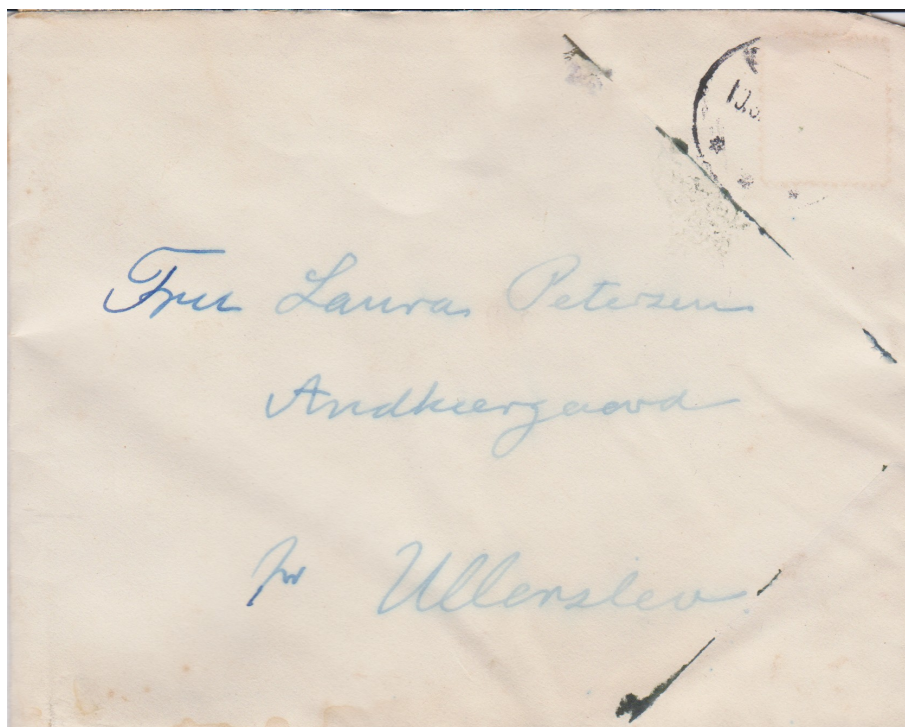 Fru Laura Petersen
Andkærgaard
pr Ullerslev